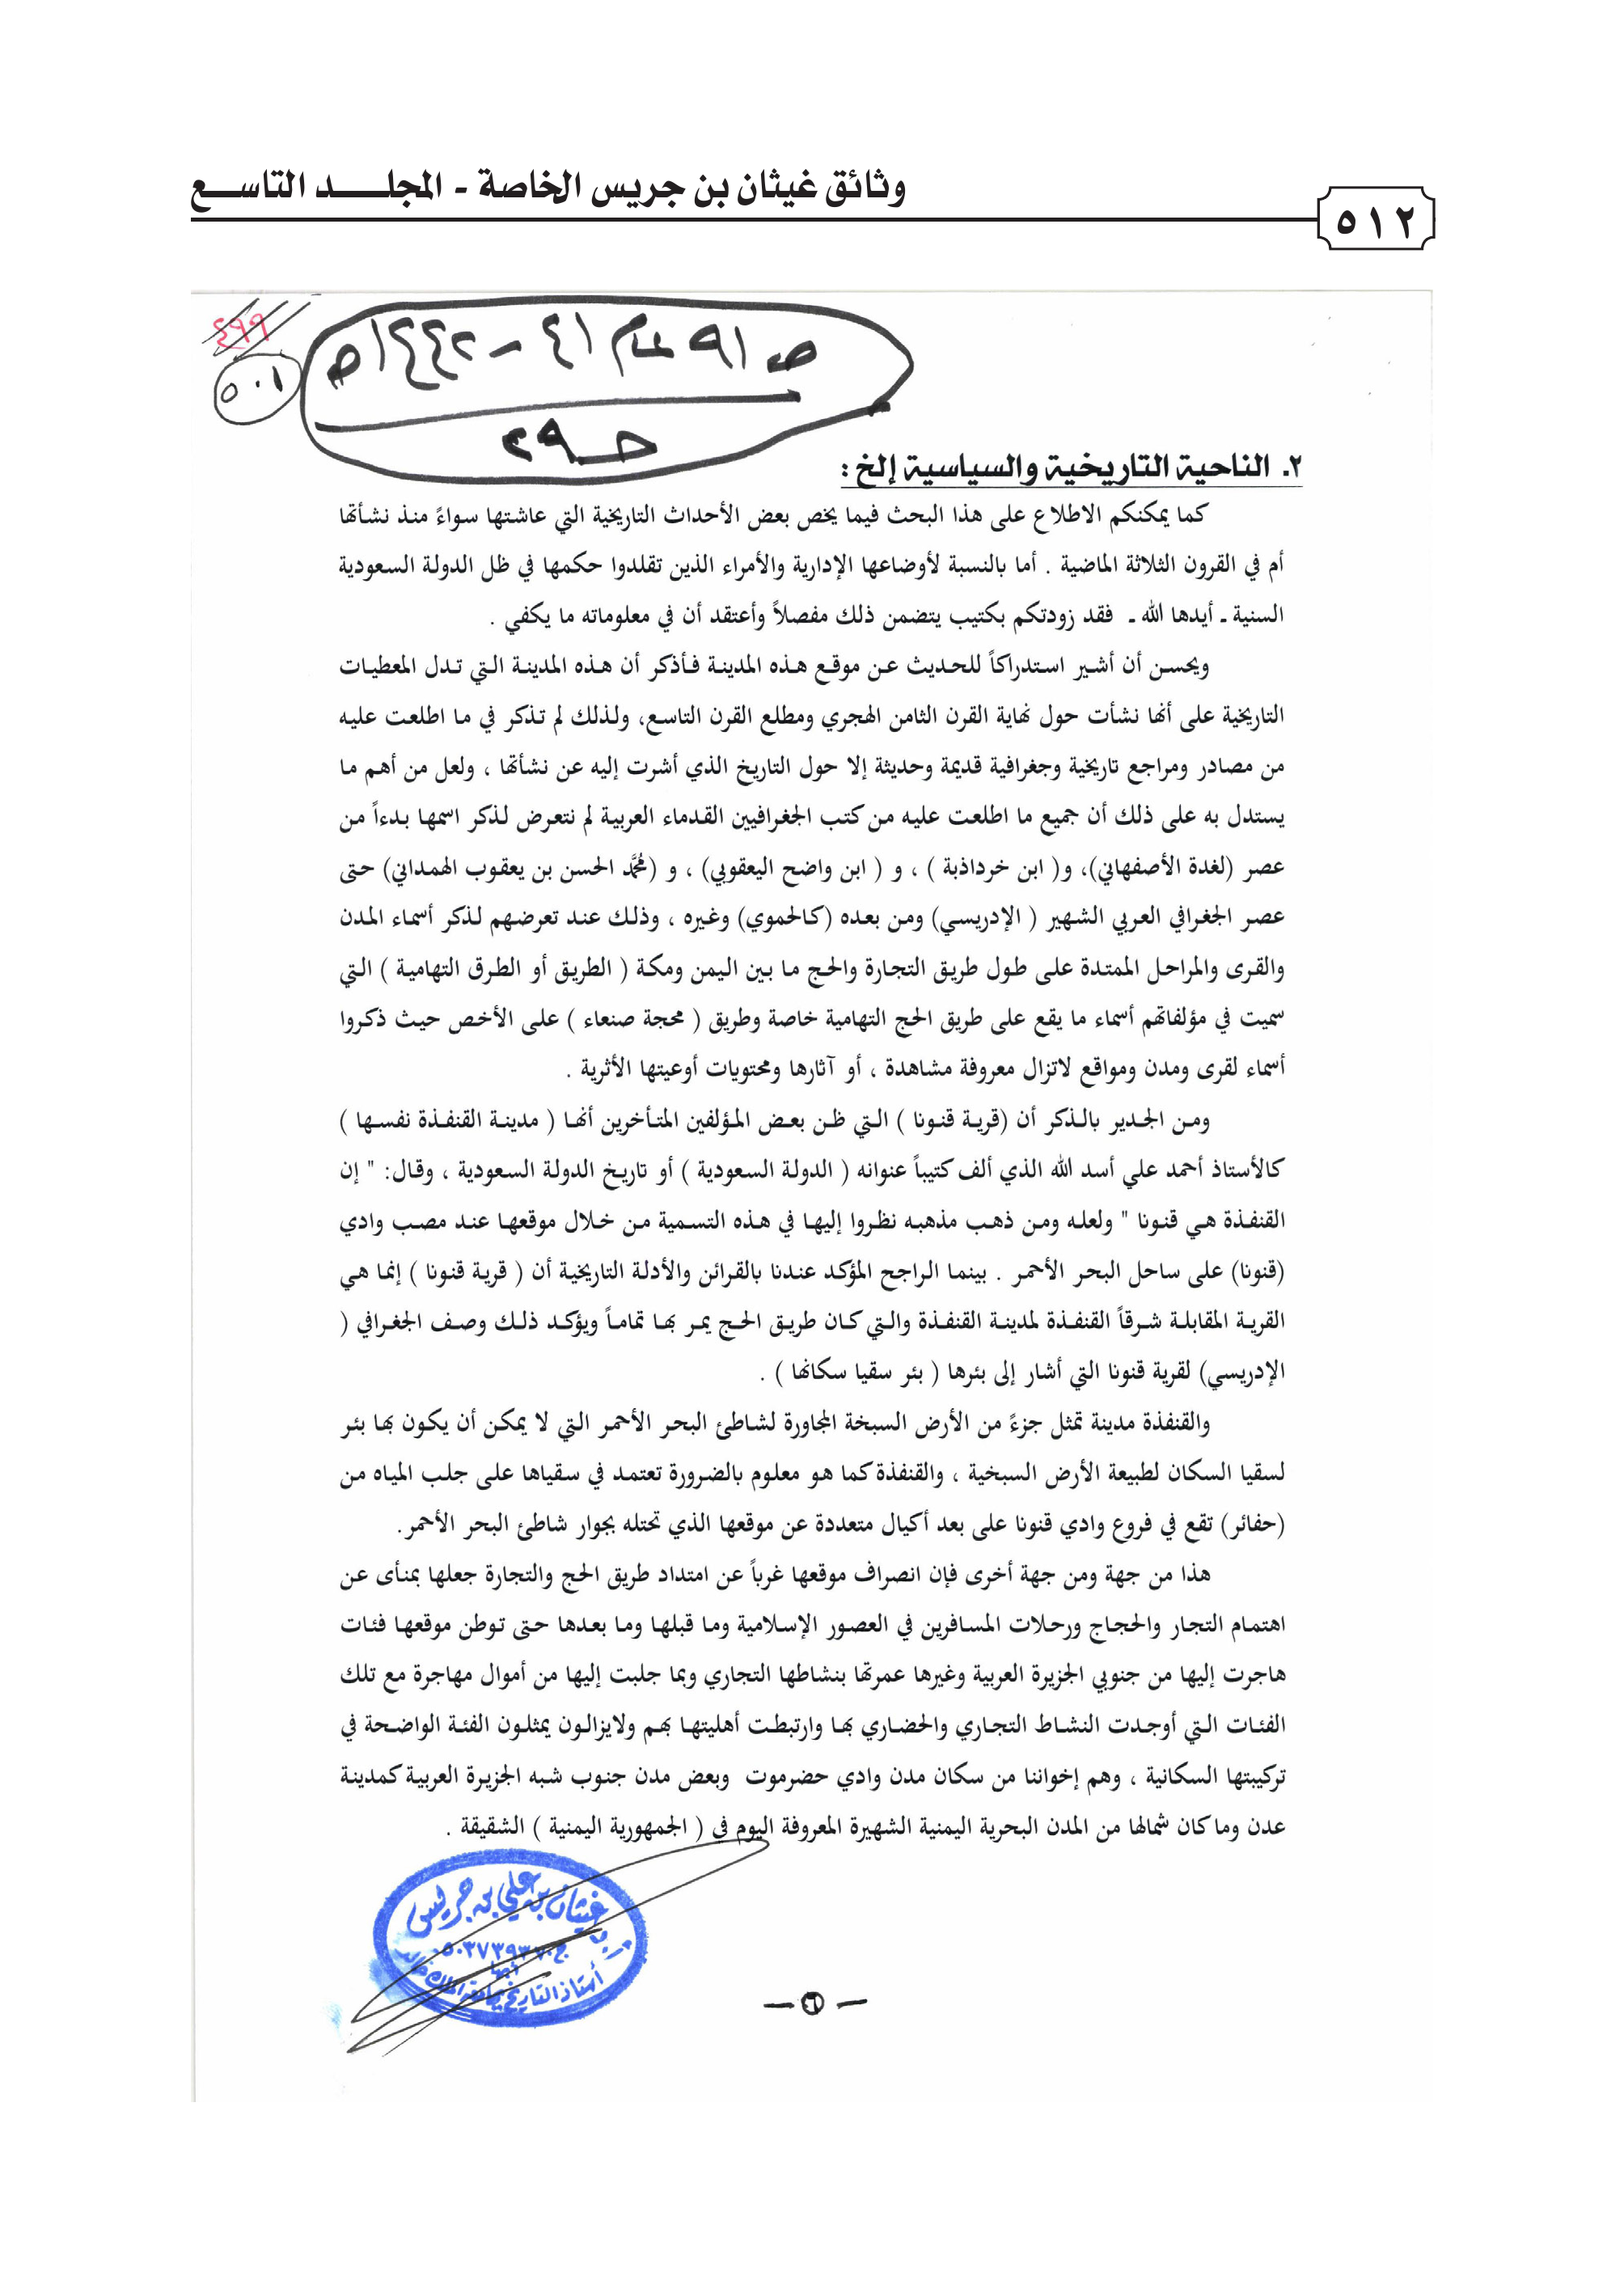 وثائق غيثان بن جريس الخاصة - المجلــــد التاســـع
٥١٢
٤٩٩
٥٠١
ص ٩١ عام ٤١ - ١٤٤٢هـ
حـ ٢٩
٢. الناحية التاريخية والسياسية إلخ:
كما يمكنكم الاطلاع على هذا البحث فيما يخص بعض الأحداث التاريخية التي عاشتها سواءً منذ نشأتها
أم في القرون الثلاثة الماضية . أما بالنسبة لأوضاعها الإدارية والأمراء الذين تقلدوا حكمها في ظل الدولة السعودية
السنية ـ أيدها الله ـ فقد زودتكم بكتيب يتضمن ذلك مفصلاً وأعتقد أن في معلوماته ما يكفي .
ويحسن أن أشير استدراكاً للحديث عن موقع هذه المدينة فأذكر أن هذه المدينة التي تدل المعطيات
التاريخية على أنها نشأت حول نهاية القرن الثامن الهجري ومطلع القرن التاسع، ولذلك لم تذكر في ما اطلعت عليه
من مصادر ومراجع تاريخية وجغرافية قديمة وحديثة إلا حول التاريخ الذي أشرت إليه عن نشأتها ، ولعل من أهم ما
يستدل به على ذلك أن جميع ما اطلعت عليه من كتب الجغرافيين القدماء العربية لم نتعرض لذكر اسمها بدءاً من
عصر (لغدة الأصفهاني)، و( ابن خرداذبة ) ، و ( ابن واضح اليعقوبي) ، و (محمَّد الحسن بن يعقوب الهمداني) حتى
عصر الجغرافي العربي الشهير ( الإدريسي) ومن بعده (كالحموي) وغيره ، وذلك عند تعرضهم لذكر أسماء المدن
والقرى والمراحل الممتدة على طول طريق التجارة والحج ما بين اليمن ومكة ( الطريق أو الطرق التهامية ) التي
سميت في مؤلفاتهم أسماء ما يقع على طريق الحج التهامية خاصة وطريق ( محجة صنعاء ) على الأخص حيث ذكروا
أسماء لقرى ومدن ومواقع لاتزال معروفة مشاهدة ، أو آثارها ومحتويات أوعيتها الأثرية .
ومن الجدير بالذكر أن (قرية قنونا ) التي ظن بعض المؤلفين المتأخرين أنها ( مدينة القنفذة نفسها )
كالأستاذ أحمد علي أسد الله الذي ألف كتيباً عنوانه ( الدولة السعودية ) أو تاريخ الدولة السعودية ، وقال: " إن
القنفذة هي قنونا " ولعله ومن ذهب مذهبه نظروا إليها في هذه التسمية من خلال موقعها عند مصب وادي
(قنونا) على ساحل البحر الأحمر . بينما الراجح المؤكد عندنا بالقرائن والأدلة التاريخية أن ( قرية قنونا ) إنما هي
القرية المقابلة شرقاً القنفذة لمدينة القنفذة والتي كان طريق الحج يمر بها تماماً ويؤكد ذلك وصف الجغرافي (
الإدريسي) لقرية قنونا التي أشار إلى بئرها ( بئر سقيا سكانها ) .
والقنفذة مدينة تمثل جزءً من الأرض السبخة المجاورة لشاطئ البحر الأحمر التي لا يمكن أن يكون بها بئر
لسقيا السكان لطبيعة الأرض السبخية ، والقنفذة كما هو معلوم بالضرورة تعتمد في سقياها على جلب المياه من
(حفائر) تقع في فروع وادي قنونا على بعد أكيال متعددة عن موقعها الذي تحتله بجوار شاطئ البحر الأحمر.
هذا من جهة ومن جهة أخرى فإن انصراف موقعها غرباً عن امتداد طريق الحج والتجارة جعلها بمنأى عن
اهتمام التجار والحجاج ورحلات المسافرين في العصور الإسلامية وما قبلها وما بعدها حتى توطن موقعها فئات
هاجرت إليها من جنوبي الجزيرة العربية وغيرها عمرتها بنشاطها التجاري وبما جلبت إليها من أموال مهاجرة مع تلك
الفئات التي أوجدت النشاط التجاري والحضاري بها وارتبطت أهليتها بهم ولايزالون يمثلون الفئة الواضحة في
تركيبتها السكانية ، وهم إخواننا من سكان مدن وادي حضرموت وبعض مدن جنوب شبه الجزيرة العربية كمدينة
عدن وما كان شمالها من المدن البحرية اليمنية الشهيرة المعروفة اليوم في ( الجمهورية اليمنية ) الشقيقة .
غيثان بن علي بن جريس
أبها
أستاذ التاريخ بجامعة الملك خالد
— ٦ —